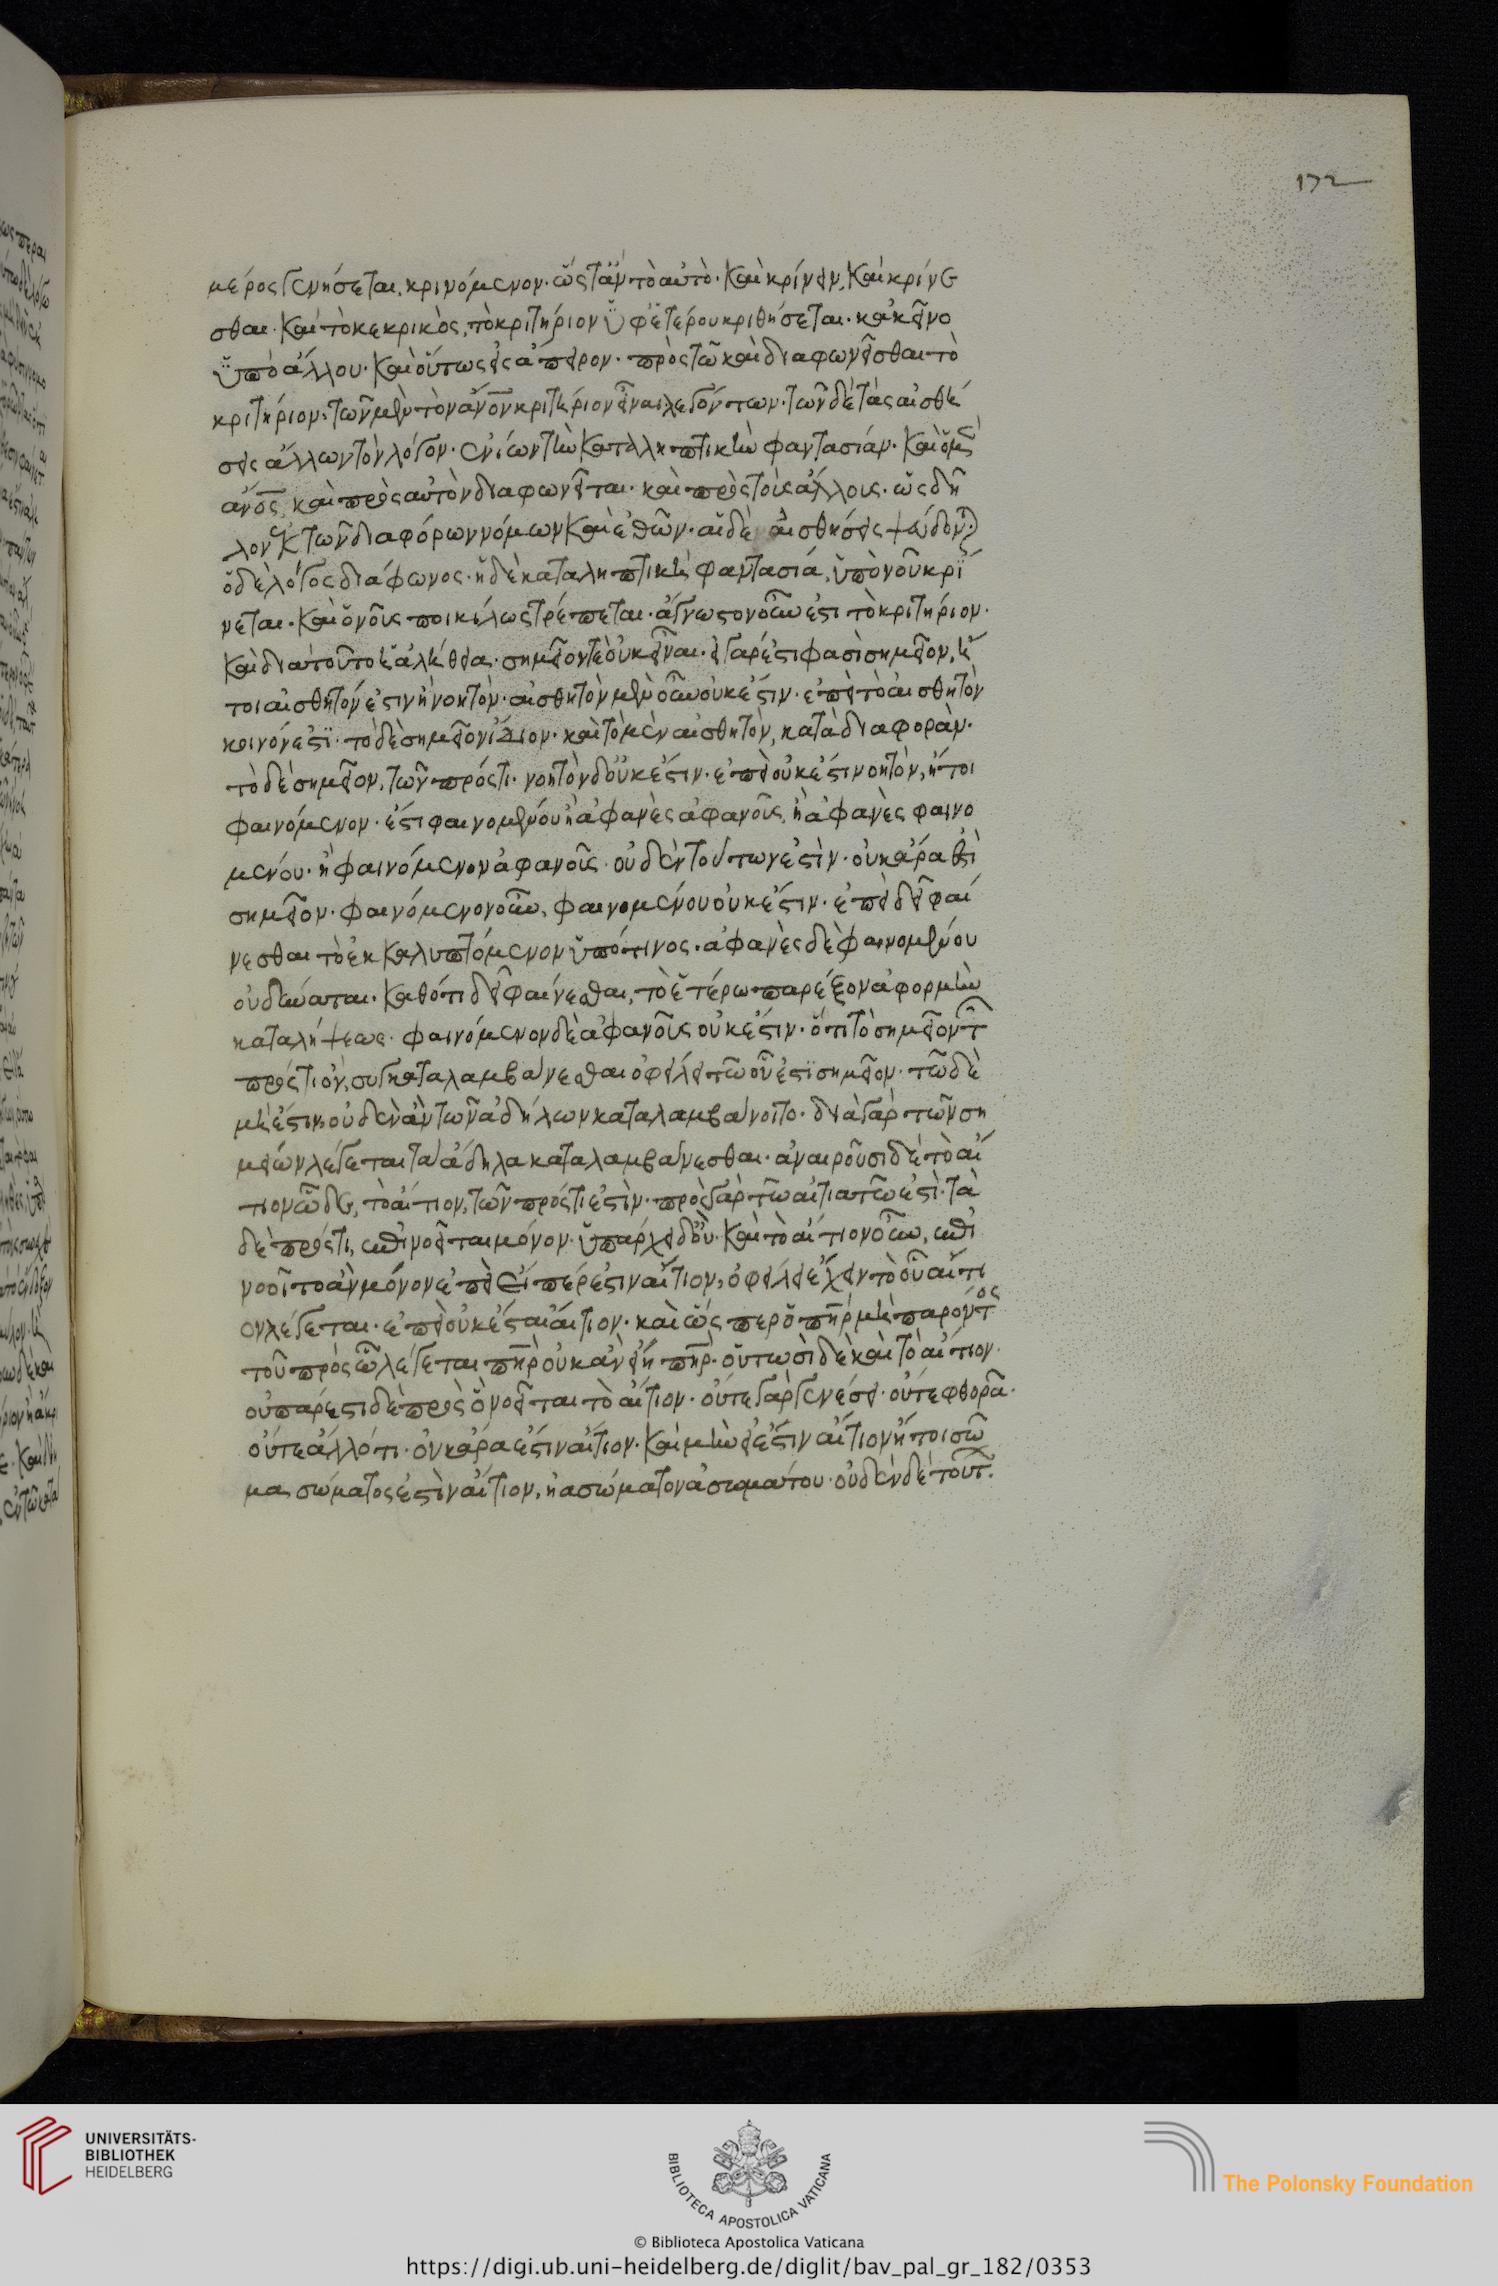 172
μέρος γενήσεται, κρινόμενον· ὥστ' ἂν τὸ αὐτὸ· καὶ κρίνειν, καὶ κρίνε
σθαι· καὶ τὸ κεκρικὸς, τὸ κριτήριον ὑφ' ἑτέρου κριθήσεται· κἀκεῖνο
ὑπὸ ἄλλου· καὶ οὕτως εἰς ἄπειρον· πρὸς τῶ καὶ διαφωνεῖσθαι τὸ
κριτήριον· τῶν μὲν τὸν ἄνον κριτήριον εἶναι λεγόντων· τῶν δὲ τὰς αἰσθή
σεις ἄλλων τὸν λόγον· ἐνίων τὴν καταληπτικὴν φαντασίαν· καὶ ὁ μὲν
ἄνος, καὶ πρὸς αὐτὸν διαφωνεῖται· καὶ πρὸς τοὺς ἄλλους· ὡς δῆ
λον ἐκ τῶν διαφόρων νόμων καὶ ἐθῶν· αἱ δὲ αἰσθήσεις ψεύδονται
ὁ δὲ λόγος διάφωνος· ἡ δὲ καταληπτικὴ φαντασία, ὑπὸ νοῦ κρί
νεται· καὶ ὁ νοῦς ποικίλως τρέπεται· ἄγνωστον οὖν ἐστι τὸ κριτήριον·
καὶ διὰ τοῦτο ἡ ἀλήθεια· σημεῖόν τε οὐκ εἶναι· εἰ γάρ ἐστι φασὶ σημεῖον, ἤ
τοι αἰσθητόν ἐστιν ἢ νοητὸν· αἰσθητὸν μὲν οὖν οὐκ ἔστιν· ἐπεὶ τὸ αἰσθητὸν
κοινόν ἐστι· τὸ δὲ σημεῖον ἴδιον· καὶ τὸ μὲν αἰσθητὸν, κατὰ διαφορὰν·
τὸ δὲ σημεῖον, τῶν πρός τι· νοητὸν δ' οὐκ ἔστιν· ἐπεὶ οὐκ ἔστι νοητὸν, ἤτοι
φαινόμενον· ἐστι φαινομένου ἢ ἀφανὲς ἀφανοῦς, ἢ ἀφανὲς φαινο
μένου· ἢ φαινόμενον ἀφανοῦς· οὐδὲν τούτων ἐστὶν· οὐκ ἄρα ἐστὶ
σημεῖον· φαινόμενον οὖν, φαινομένου οὐκ ἔστιν· ἐπεὶ δεῖ φαί
νεσθαι τὸ ἐκκαλυπτόμενον ὑπό τινος· ἀφανὲς δὲ φαινομένου
οὐ δύναται· καθότι δεῖ φαίνεσθαι, τὸ ἑτέρω παρέξον ἀφορμὴν
καταλήψεως· φαινόμενον δὲ ἀφανοῦς οὐκ ἔστιν· ὅτι τὸ σημεῖον τῶν
πρός τι ὂν, συγκαταλαμβάνεσθαι ὀφείλει τῶ οὗ ἐστι σημεῖον· τῶ δὲ
μὴ ἔστιν, οὐδὲν ἂν τῶν ἀδήλων καταλαμβάνοιτο· διὰ γὰρ τῶν ση
μείων λέγεται τὰ ἄδηλα καταλαμβάνεσθαι· ἀναιροῦσι δὲ τὸ αἴ
τιον ὧδε, τὸ αἴτιον, τῶν πρός τι ἐστὶν· πρὸς γὰρ τῶ αἰτιατῶ ἐστὶ· τὰ
δὲ πρός τι, ἐπινοεῖται μόνον· ὑπάρχει δ' οὔ· καὶ τὸ αἴτιον οὖν, ἐπι
νοοῖτο ἂν μόνον ἐπεὶ εἴπερ ἐστιν αἴτιον, ὀφείλει ἔχειν τὸ οὗ αἴτι
ον λέγεται· ἐπεὶ οὐκ ἔσται αἴτιον· καὶ ὥσπερ ὁ πηρ μὴ παρόντος
τοῦ πρὸς ὃ λέγεται πηρ οὐκ ἂν εἴη πηρ· οὕτωσὶ δὲ καὶ τὸ αἴτιον·
οὐ πάρεστι δὲ πρὸς ὃ νοεῖται τὸ αἴτιον· οὔτε γὰρ γενέσει· οὔτε φθορᾶ·
οὔτε ἄλλό τι· οὐκ ἄρα ἐστιν αἴτιον· καὶ μὴν εἰ ἔστιν αἴτιον ἤτοι σῶ
μα σώματος ἐστὶν αἴτιον, ἢ ἀσώματον ἀσωμάτου· οὐδὲν δὲ τούτ.
UNIVERSITÄTS-
BIBLIOTHEK
HEIDELBERG
BIBLIOTECA APOSTOLICA VATICANA
The Polonsky Foundation
© Biblioteca Apostolica Vaticana
https://digi.ub.uni-heidelberg.de/diglit/bav_pal_gr_182/0353